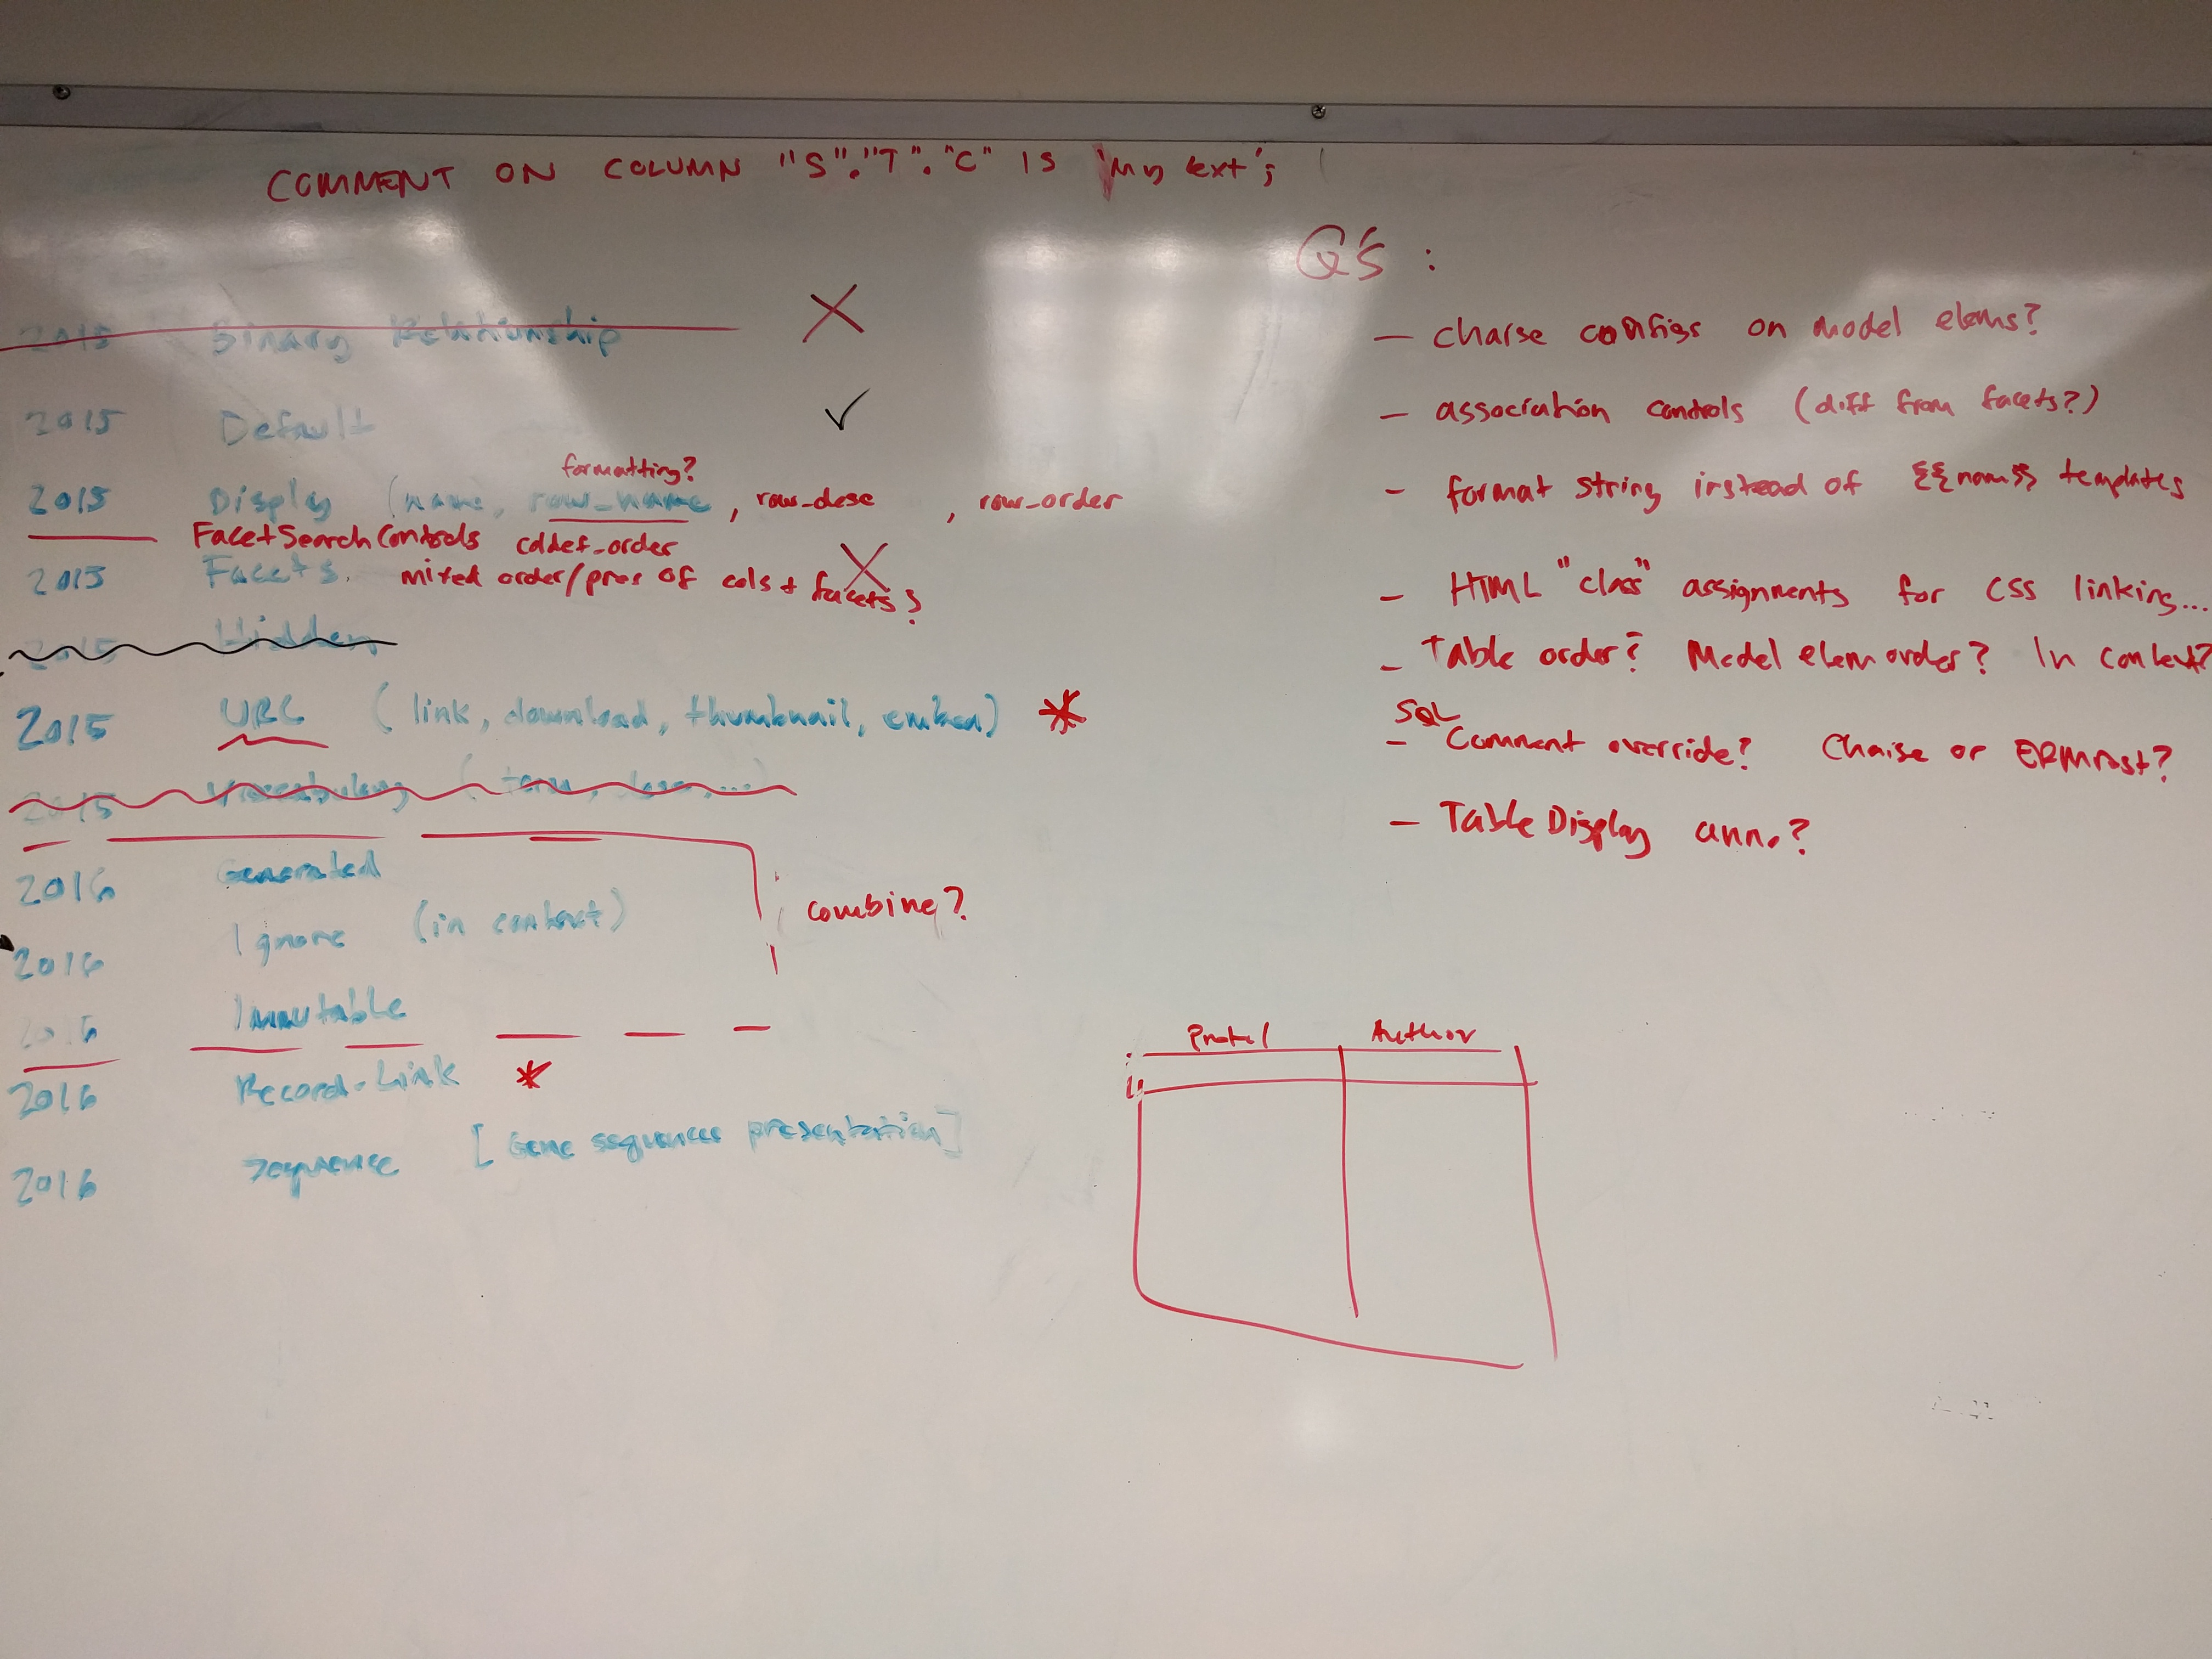 COMMENT ON COLUMN "S"."T"."C" IS 'My text';
2015 Binary Relationship
2015 Default
formatting?
2015 Display (name, row_name, row_desc, row_order
FacetSearchControls coldef_order
2015 Facets mixed order/pres of cols + facets?
2015 Hidden
2015 URL (link, download, thumbnail, embed) *
2015 Vocabulary (term, ...)
2016 Generated
2016 Ignore (in context)
combine?
2016 Immutable
2016 Record-Link *
2016 Sequence [Gene sequences presentation]
Q'S :
- chaise configs on model elems?
- association controls (diff from facets?)
- format string instead of {{name}} templates
- HTML "class" assignments for CSS linking...
- Table order? Model elem order? In context?
SQL
- Comment override? Chaise or ERMrest?
- Table Display anno?
Author